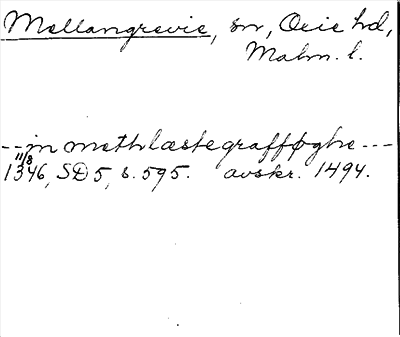 Mellangrevie, sn, Oxie hd,
Malm. l.
--in methlæstegrafføghe---
11/8
1346, SD 5, s. 595. avskr. 1494.